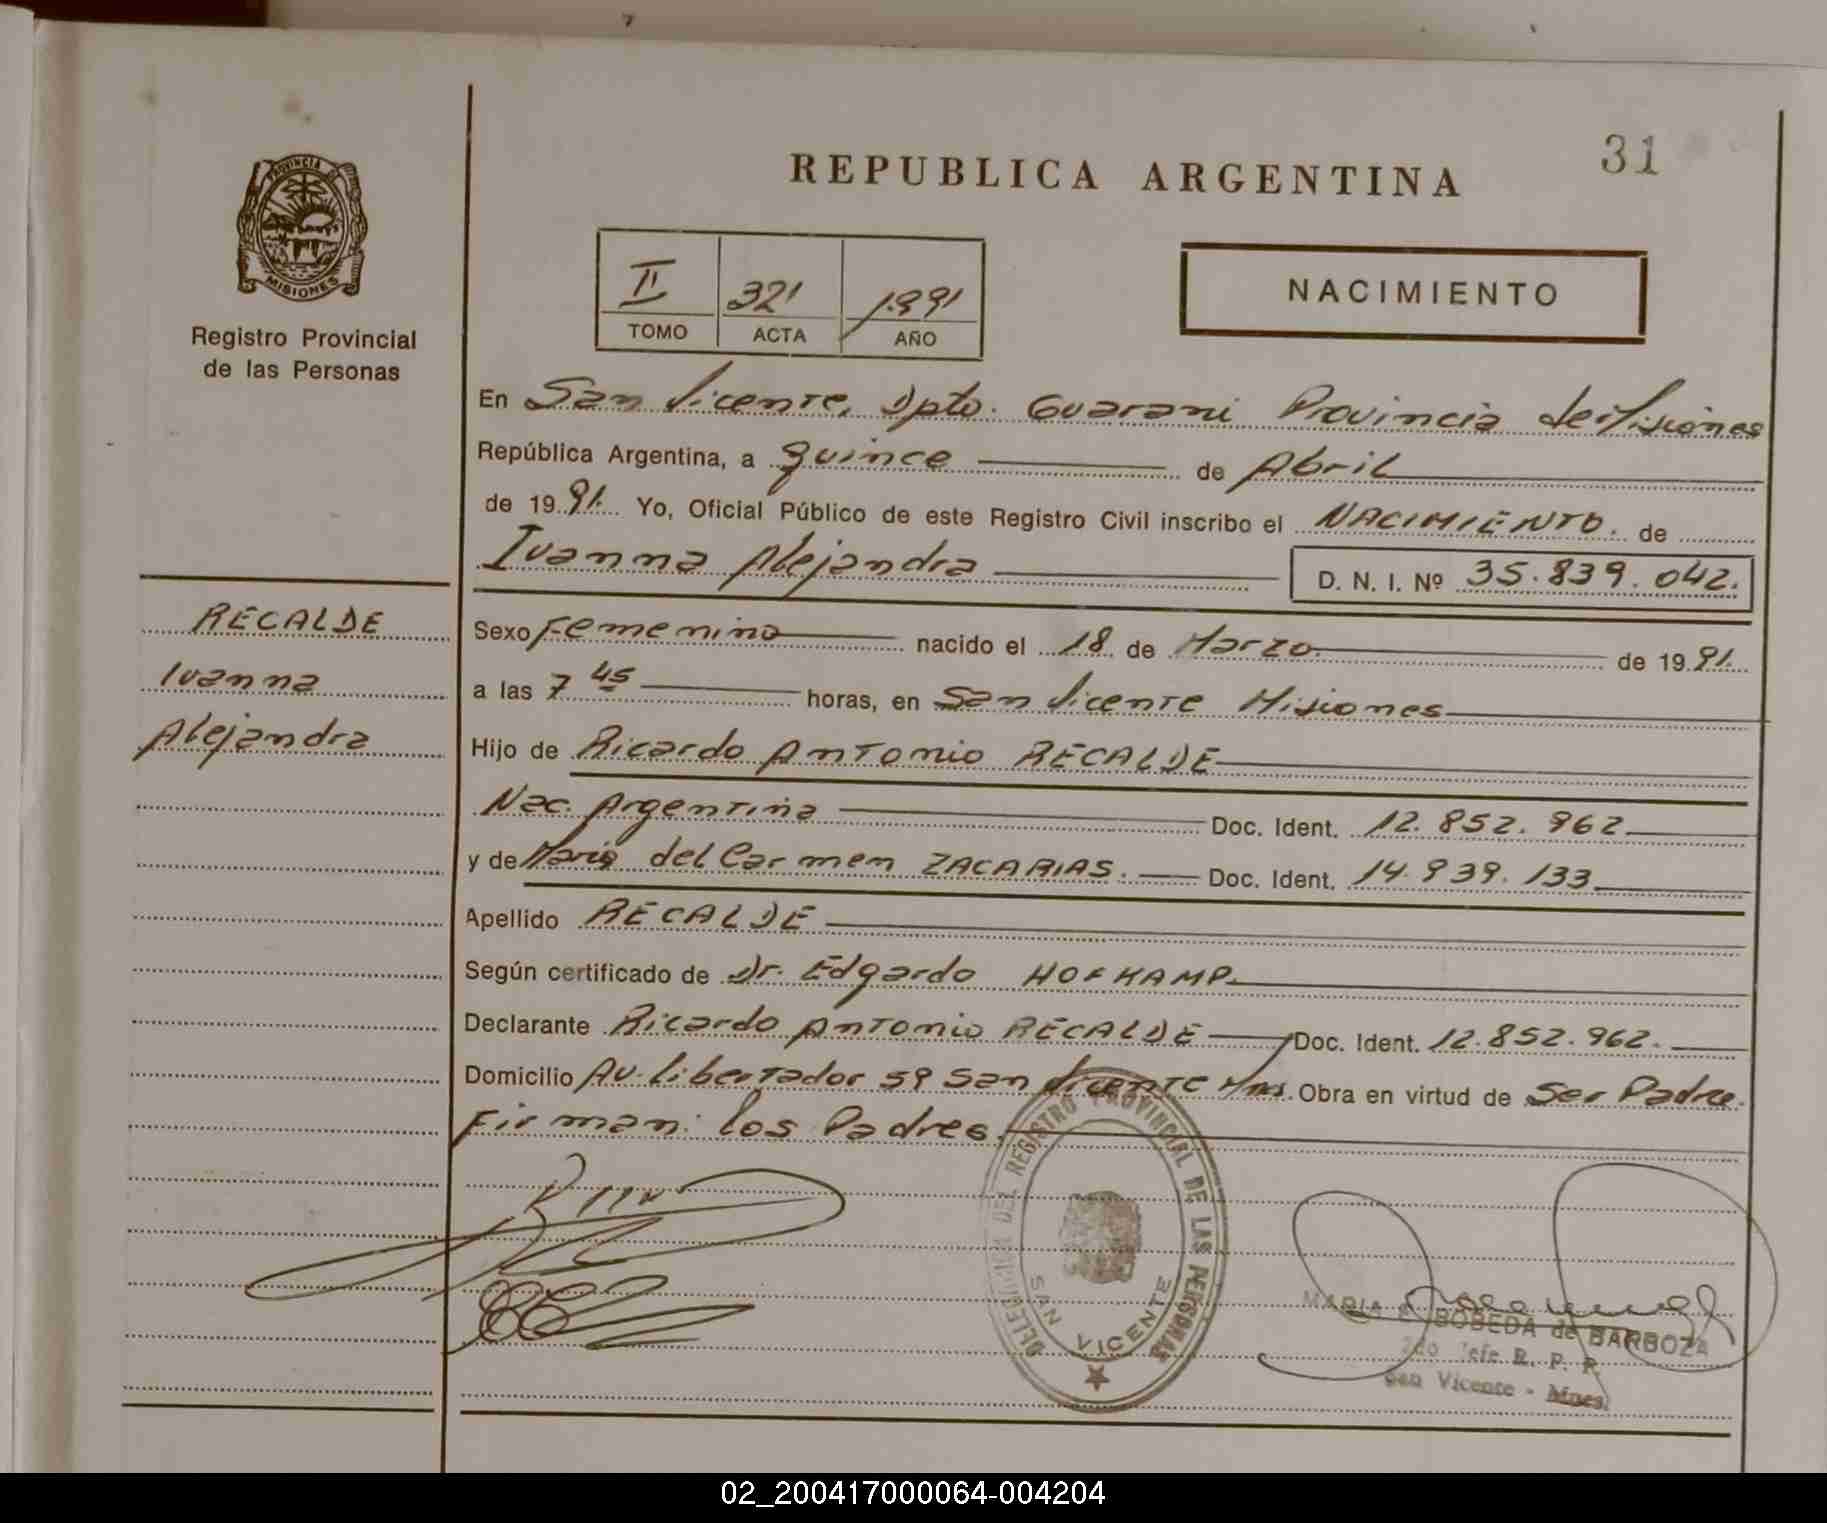 31
REPUBLICA ARGENTINA
PROVINCIA DE
MISIONES
Registro Provincial
de las Personas
II 321 1.991
TOMO ACTA AÑO
NACIMIENTO
En San Vicente, Dpto. Guarani Provincia de Misiones
República Argentina, a quince de Abril
de 19 91. Yo, Oficial Público de este Registro Civil inscribo el NACIMIENTO. de
Ivanna Alejandra D. N. I. Nº 35.839.042.
RECALDE
Ivanna
Alejandra
Sexo Femenino nacido el 18 de Marzo de 19 91.
a las 7 45 horas, en San Vicente Misiones
Hijo de Ricardo Antonio RECALDE
Nac. Argentina Doc. Ident. 12.852.962
y de Maria del Carmen ZACARIAS. Doc. Ident. 14.939.133
Apellido RECALDE
Según certificado de Dr. Edgardo HOFKAMP
Declarante Ricardo Antonio RECALDE Doc. Ident. 12.852.962.
Domicilio Av. Libertador 59 San Vicente Mnes. Obra en virtud de Ser Padre.
Firman: los Padres.
DELEGACION DEL REGISTRO PROVINCIAL DE LAS PERSONAS
SAN VICENTE
MARIA BOBEDA de BARBOZA
2do Jefe R. P. P.
San Vicente - Mnes.
02_200417000064-004204